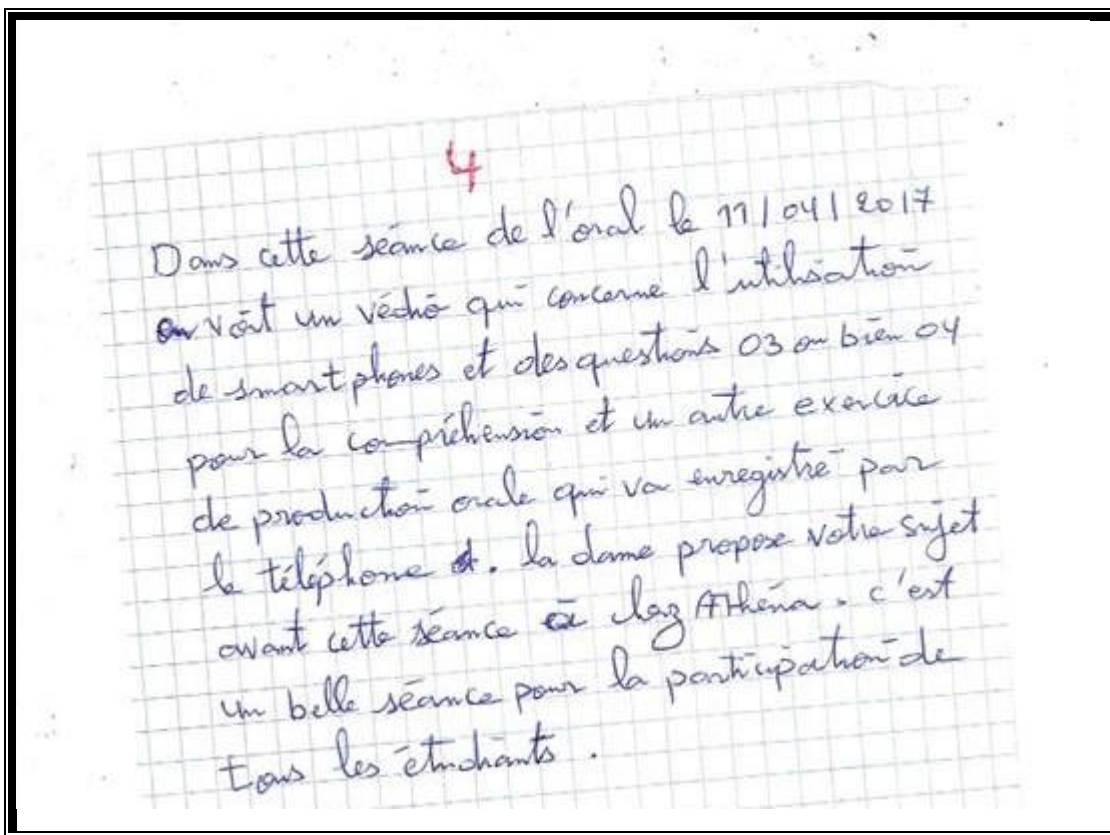 4
Dans cette séance de l'oral le 11/04/2017
on voit un védio qui concerne l'utilisation
de smart phones et des questions 03 ou bien 04
pour la compréhension et un autre exercice
de production orale qui va enregistré par
le téléphone . la dame propose votre sujet
avant cette séance Athéna . c'est
un belle séance pour la participation de
tous les étudiants .